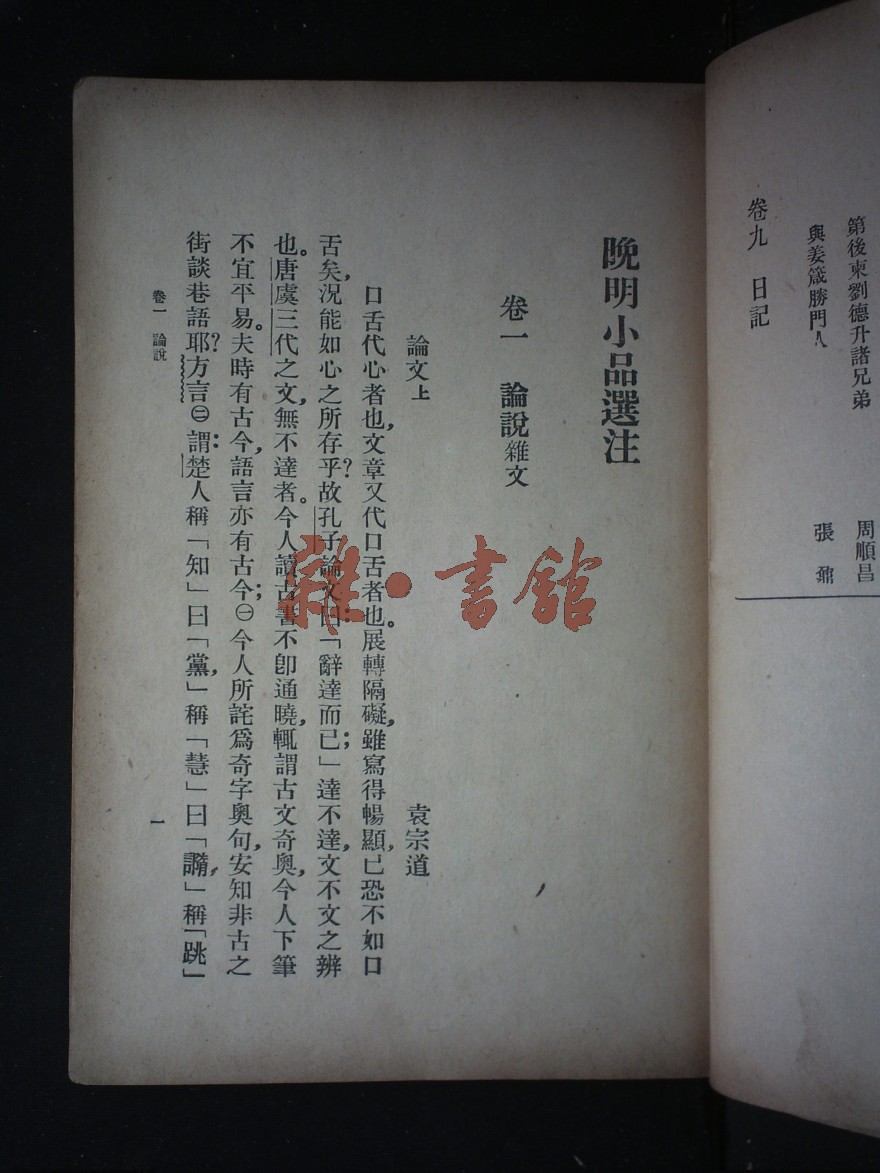 第後柬劉德升諸兄弟 周順昌
與姜箴勝門人 張鼐
卷九 日記
晚明小品選注
卷一 論說雜文
論文上 袁宗道
口舌代心者也,文章又代口舌者也。展轉隔礙,雖寫得暢顯,已恐不如口
舌矣,況能如心之所存乎?故孔子論文曰:「辭達而已;」達不達,文不文之辨
也。唐虞三代之文,無不達者。今人讀古書不卽通曉,輒謂古文奇奧,今人下筆
不宜平易。夫時有古今,語言亦有古今;㊀今人所詫爲奇字奧句,安知非古之
街談巷語耶?方言㊁謂:楚人稱「知」曰「黨,」稱「慧」曰「䜏,」稱「跳」
卷一 論說 一
雜·書館